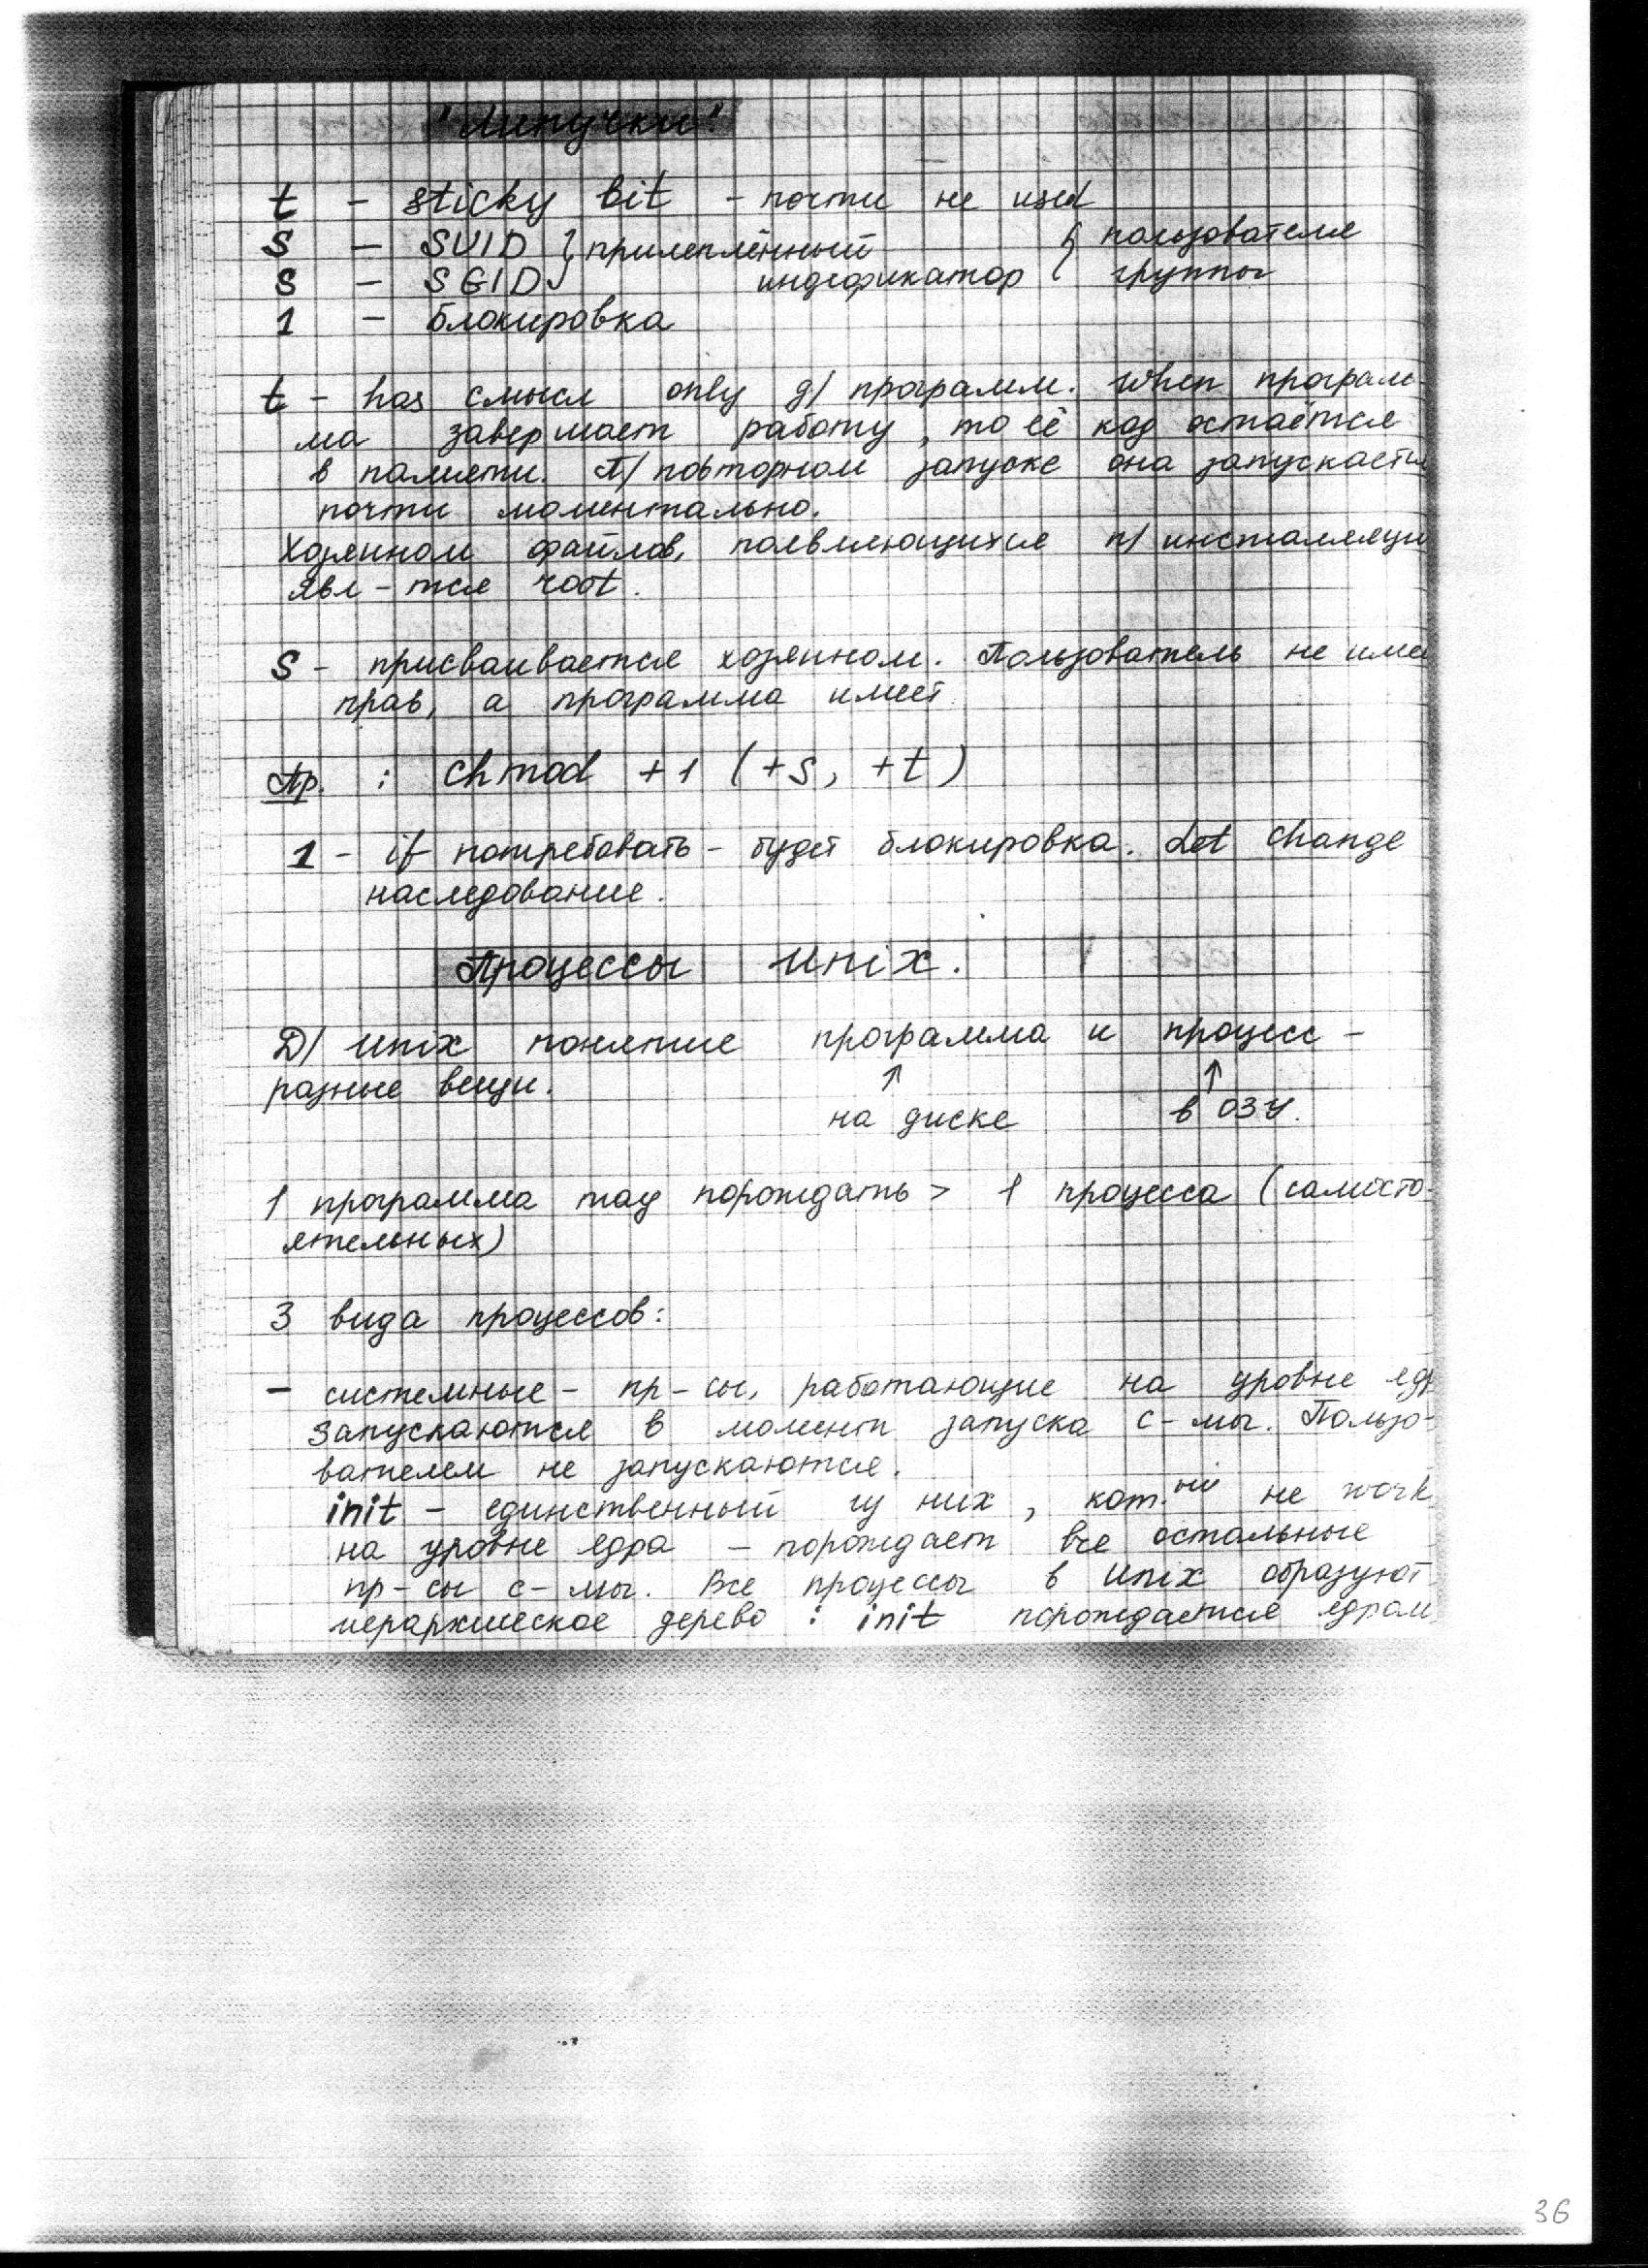 "Липучки".
t - sticky bit - почти не used
S - SUID } прилеплённый { пользователя
S - SGID } индефикатор { группы
1 - блокировка
t - has смысл only д/ программ. When програм-
ма завершает работу, то её код остаётся
в памяти. П/ повторном запуске она запускается
почти моментально.
Хозяином файлов, появляющихся п/ инсталляци
явл-тся root.
S - присваивается хозяином. Пользователь не име
прав, а программа имеет
Пр. : chmod +1 (+s, +t)
1 - if потребовать - будет блокировка. Let change
наследование.
Процессы Unix.
Д/ Unix понятие программа и процесс -
разные вещи. ↑ ↑
на диске в ОЗУ.
1 программа may порождать > 1 процесса (самосто-
ятельных)
3 вида процессов:
- системные - пр-сы, работающие на уровне яд
запускаются в момент запуска с-мы. Пользо-
вателем не запускаются.
init - единственный из них, кот.ый не work
на уровне ядра - порождает все остальные
пр-сы с-мы. Все процессы в Unix образуют
иерархическое дерево : init порождается ядром
36